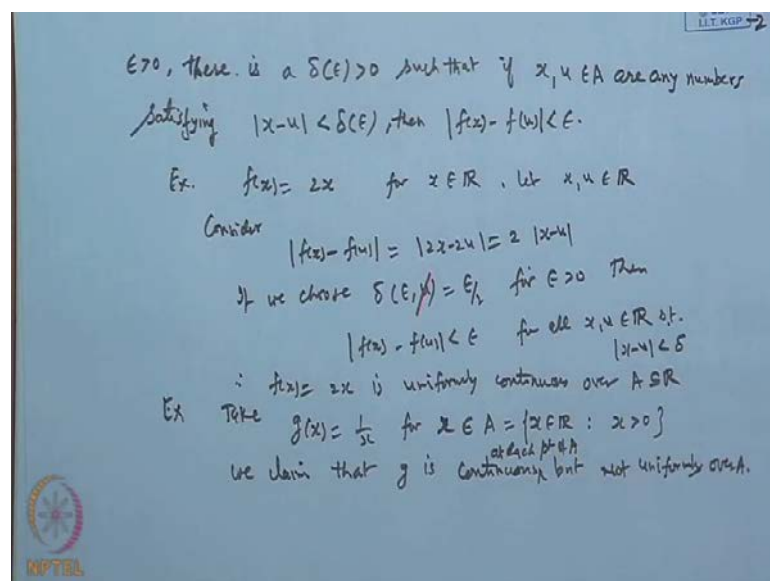 I.I.T. KGP -2
ϵ>0, there is a δ(ϵ)>0 such that if x, u ∈ A are any numbers
satisfying |x-u| < δ(ϵ), then |f(x)- f(u)| < ϵ.
Ex. f(x)= 2x for x ∈ ℝ . Let x, u ∈ ℝ
Consider
|f(x)- f(u)| = |2x-2u| = 2 |x-u|
If we choose δ(ϵ, u) = ϵ/2 for ϵ>0 Then
|f(x) - f(u)| < ϵ for all x, u ∈ ℝ s.t.
|x-u| < δ
∴ f(x)= 2x is uniformly continuous over A ⊆ ℝ
Ex Take g(x) = 1/x for x ∈ A = {x ∈ ℝ : x>0}
at each pt of A
we claim that g is continuous but not uniformly over A.
NPTEL